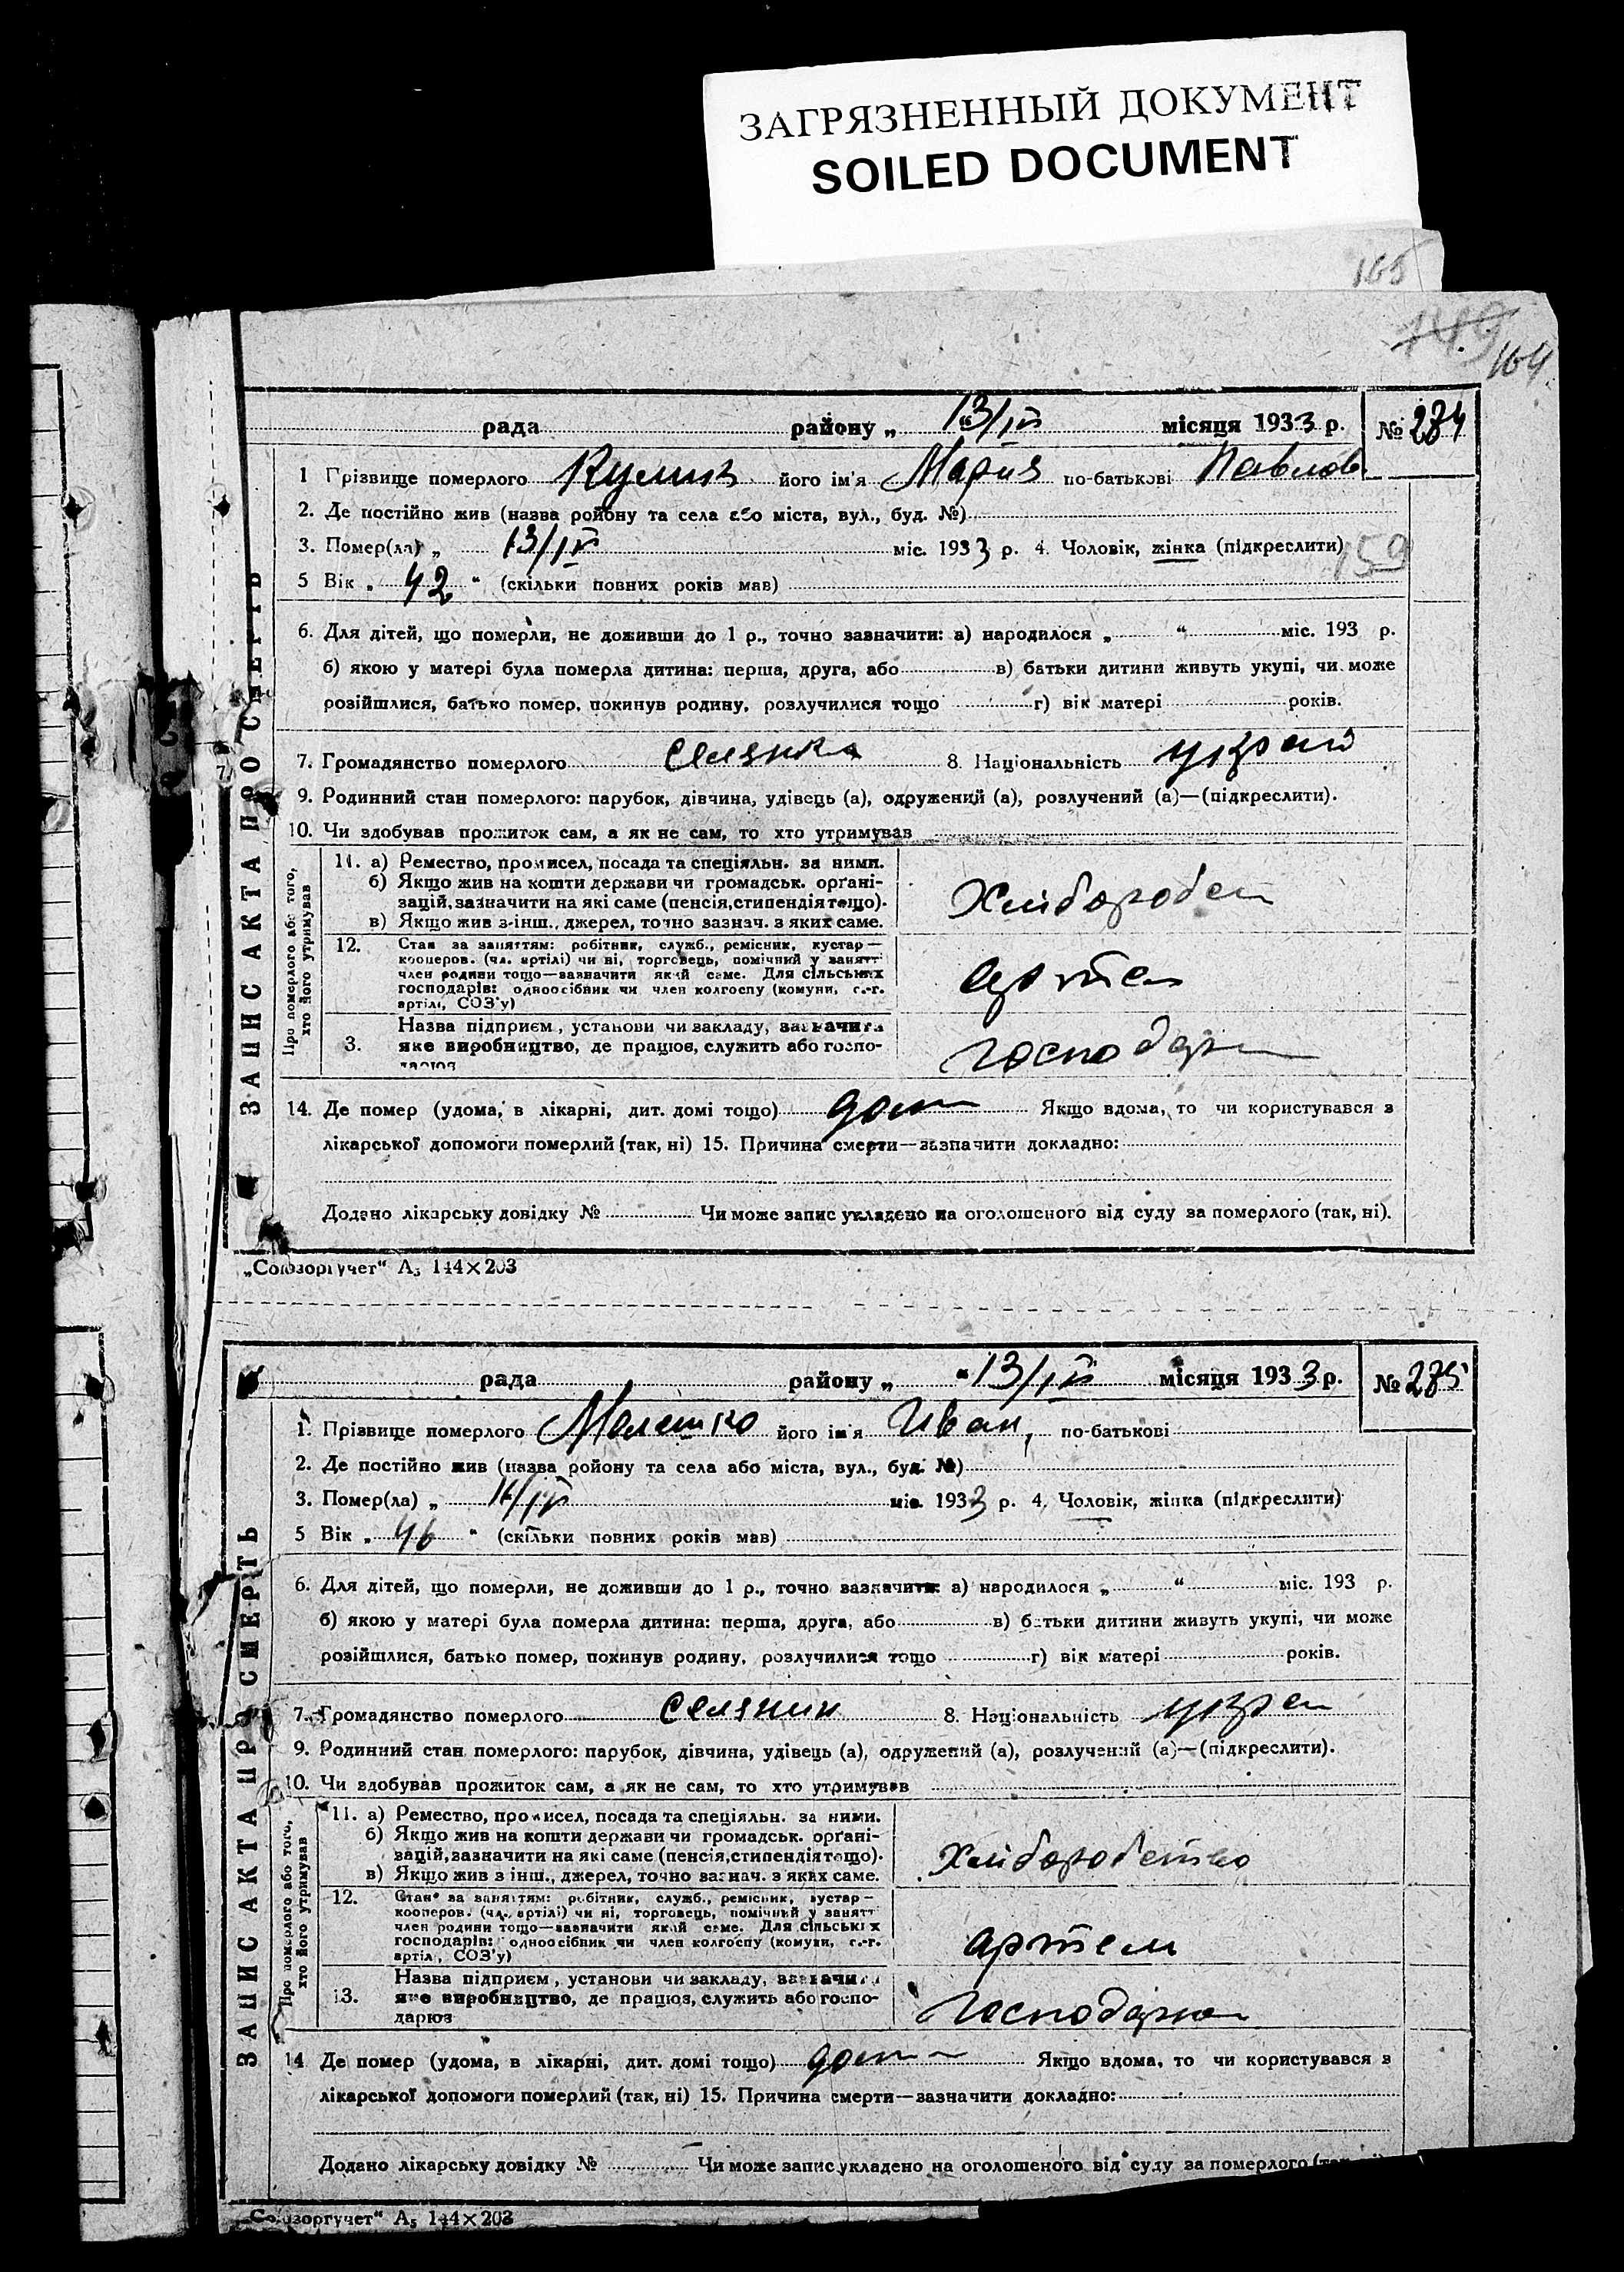 ЗАГРЯЗНЕННЫЙ ДОКУМЕНТ
SOILED DOCUMENT
165
149
164
рада району „ 13/IV місяця 1933 р. № 274
1 Прізвище померлого Кулик його ім'я Мария по-батькові Павлов
2. Де постійно жив (назва ройону та села або міста, вул., буд. №)
3. Помер(ла) „ 13/IV міс. 1933 р. 4. Чоловік, жінка (підкреслити)
159
5 Вік „ 42 “ (скільки повних років мав)
6. Для дітей, що померли, не доживши до 1 р., точно зазначити: а) народилося „ “ міс. 193 р.
б) якою у матері була померла дитина: перша, друга, або в) батьки дитини живуть укупі, чи може
розійшлися, батько помер, покинув родину, розлучилися тощо г) вік матері років.
7. Громадянство померлого селянка 8. Національність украй
9. Родинний стан померлого: парубок, дівчина, удівець (а), одружений (а), розлучений (а)—(підкреслити).
10. Чи здобував прожиток сам, а як не сам, то хто утримував
Про померлого або того,
хто його утримував
11. а) Ремество, промисел, посада та спеціяльн. за ними.
б) Якщо жив на кошти держави чи громадськ. орґані-
зацій, зазначити на які саме (пенсія, стипендія тощо).
в) Якщо жив з-інш., джерел, точно зазнач. з яких саме.
Хліборобст
12. Стан за заняттям: робітник, служб., ремісник, кустар—
кооперов. (чл. артілі) чи ні, торговець, помічний у занятт
член родини тощо—зазначити який саме. Для сільських
господарів: одноосібник чи член колгоспу (комуни, с.-г.
артілі, СОЗ'у)
артел
Назва підприєм., установи чи закладу, зазначити
3. яке виробництво, де працюв, служить або госпо-
дарюв
господар
14. Де помер (удома, в лікарні, дит. домі тощо) дом Якщо вдома, то чи користувався з
лікарської допомоги померлий (так, ні) 15. Причина смерти—зазначити докладно:
Додано лікарську довідку № Чи може запис укладено на оголошеного від суду за померлого (так, ні).
ЗАПИС АКТА ПРО СМЕРТЬ
„Союзоргучет“ А5 144×203
рада району „ “ 13/IV місяця 1933 р. № 275
1. Прізвище померлого Молешко його ім'я Иван, по-батькові
2. Де постійно жив (назва ройону та села або міста, вул., буд. №)
3. Помер(ла) „ 11/IV міс. 1933 р. 4. Чоловік, жінка (підкреслити)
5 Вік „ 46 “ (скільки повних років мав)
6. Для дітей, що померли, не доживши до 1 р., точно зазначити: а) народилося „ “ міс. 193 р.
б) якою у матері була померла дитина: перша, друга, або в) батьки дитини живуть укупі, чи може
розійшлися, батько помер, покинув родину, розлучилися тощо г) вік матері років.
7. Громадянство померлого селянин 8. Національність украї
9. Родинний стан померлого: парубок, дівчина, удівець (а), одружений (а), розлучений (а)—(підкреслити).
10. Чи здобував прожиток сам, а як не сам, то хто утримував
Про померлого або того,
хто його утримував
11. а) Ремество, промисел, посада та спеціяльн. за ними.
б) Якщо жив на кошти держави чи громадськ. орґані-
зацій, зазначити на які саме (пенсія, стипендія тощо).
в) Якщо жив з інш., джерел, точно зазнач. з яких саме.
Хліборобство
12. Стан за заняттям: робітник, служб., ремісник, кустар—
кооперов. (чл. артілі) чи ні, торговець, помічний у занятт
член родини тощо—зазначити який саме. Для сільських
господарів: одноосібник чи член колгоспу (комуни, с.-г.
артілі, СОЗ'у)
артели
Назва підприєм., установи чи закладу, зазначити
13. яке виробництво, де працюв, служить або госпо-
дарює
господарст
14 Де помер (удома, в лікарні, дит. домі тощо) дома Якщо вдома, то чи користувався з
лікарської допомоги померлий (так, ні) 15. Причина смерти—зазначити докладно:
Додано лікарську довідку № Чи може запис укладено на оголошеного від суду за померлого
ЗАПИС АКТА ПРО СМЕРТЬ
„Союзоргучет“ А5 144×203